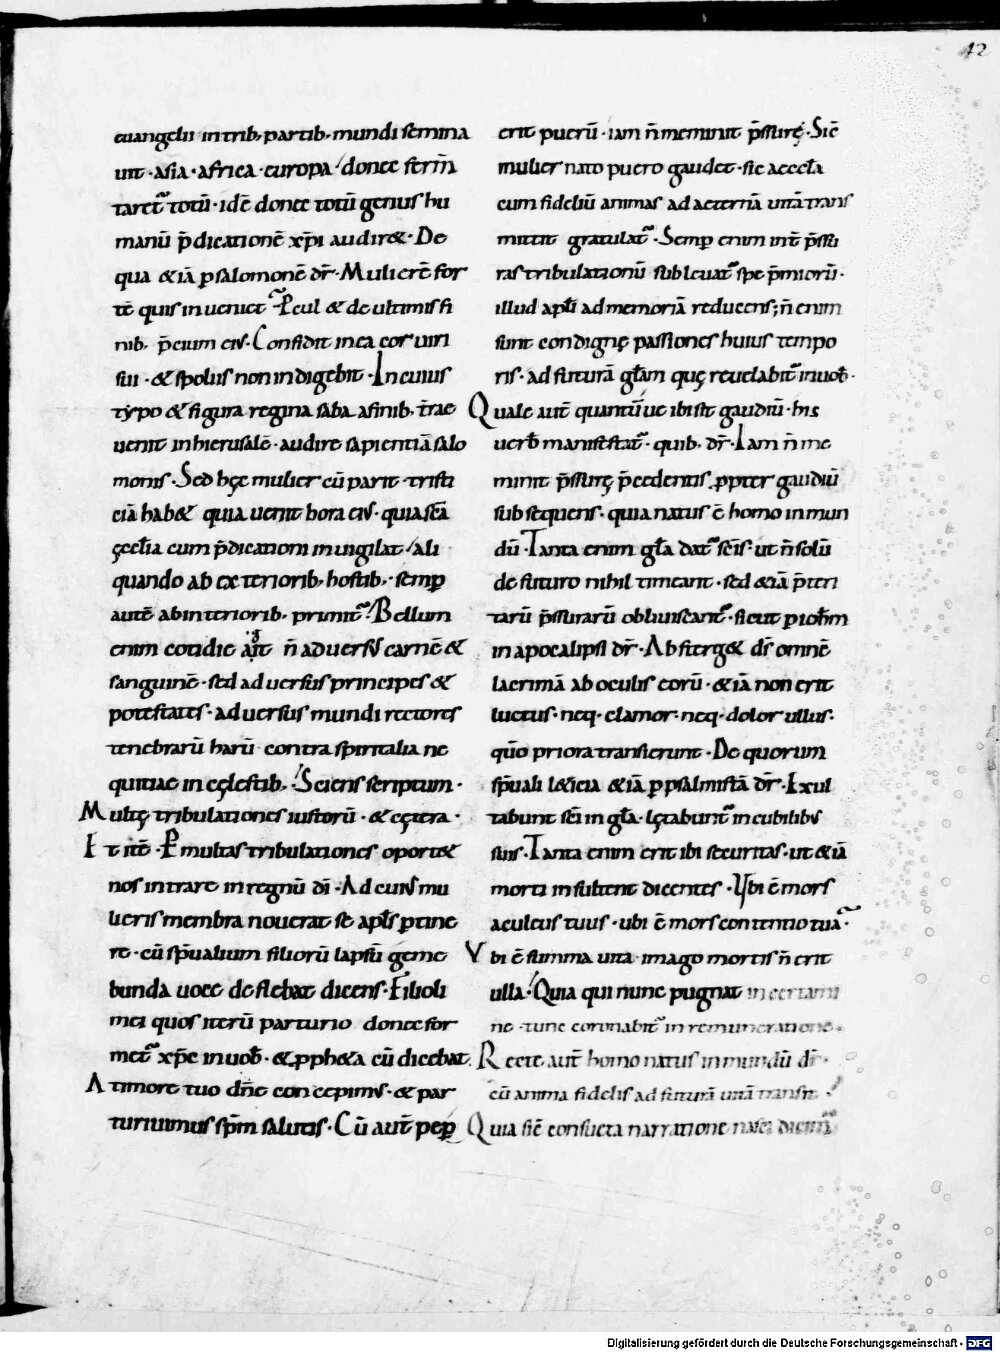 42
euangelii in trib; partib; mundi semina
uit · asia · africa · europa · donec ferm̄
taret᷑ totū · idē donec totū genus hu
manū p̄dicationē xp̄i audir& · De
qua &iā p salomonē dr̄ · Mulierē for
tē quis inueniet · Pcul & de ultimis fi
nib; p̄cium eis · Confidit in ea cor uiri
sui · & spoliis non indigebit · In cuius
typo & figura regina saba a finib; t̄rae
uenit in hierusalē · audire sapientiā salo
monis · Sed hęc mulier cū parit tristi
ciā hab& quia uenit hora eis · quia sc̄ā
ęcclīa cum p̄dicationi inuigilat ali
quando ab exteriorib; hostib; semp
autē ab interiorib; primit᷑ · Bellum
enim cotidie aḡit n̄ aduersus carnē &
sanguinē · sed aduersus principes &
potestates · aduersus mundi rectores
tenebrarū harū contra spiritalia ne
quitiae in cęlestib; · Sciens scriptum ·
Multę tribulationes iustorū · & cętera ·
Et itē · P multas tribulationes oport&
nos intrare in regnū dī · Ad cuius mu
lieris membra nouerat se apl̄s ptine
re · cū sp̄ualium filiorū lapsū geme
bunda uoce deflebat dicens · Filioli
mei quos iterū parturio donec for
met᷑ xp̄c in uob̄ · & pph&a cū dicebat
A timore tuo dn̄e concepimus · & par
turiuimus sp̄m salutis · Cū aut̄ pep
erit puerū · iam n̄ meminit p̄ssurę · Sic̄
mulier nato puero gaudet · sic aeccl̄a
cum fideliū animas ad aeternā uitā trans
mittit gratulat᷑ · Semp enim int̄ p̄ssu
ras tribulationū subleuat᷑ spe p̄miorū ·
illud apl̄i ad memoriā reducens; n̄ enim
sunt condignę passiones huius tempo
ris · ad futurā gl̄am quę reuelabit᷑ in uob̄ ·
Quale aut̄ quantūue ibi sit gaudiū · his
uerb̄ manifestat᷑ · quib; dr̄ · Iam n̄ me
minit p̄ssurę p̄cedentis ppter gaudiū
subsequens · quia natus ē homo in mun
dū · Tanta enim gl̄a dat᷑ sc̄is · ut n̄ solū
de futuro nihil timeant · sed &iā p̄teri
tarū p̄ssurarū obliuiscant᷑ · sicut p ioh̄m
in apocalipsi dr̄ · Absterg& ds̄ omnē
lacrimā ab oculis eorū · &iā non erit
luctus · neq; clamor · neq; dolor ullus ·
qūo priora transierunt · De quorum
sp̄uali l&icia &iā p psalmistā dr̄ · Exul
tabunt sc̄i in gl̄a · lętabunt᷑ in cubilibus
suis · Tanta enim erit ibi securitas · ut &iā
morti insultent dicentes · Ubi ē mors
aculeus tuus · ubi ē mors contentio tua ·
Vbi ē summa uita imago mortis n̄ erit
ulla · Quia qui nunc pugnat in certami
ne · tunc coronabit᷑ in remuneratione ·
Recte aut̄ homo natus in mundū dr̄ ·
cū anima fidelis ad futurā uitā transit ·
Quia sic̄ consueta narratione nasci dicim᷑
Digitalisierung gefördert durch die Deutsche Forschungsgemeinschaft - DFG